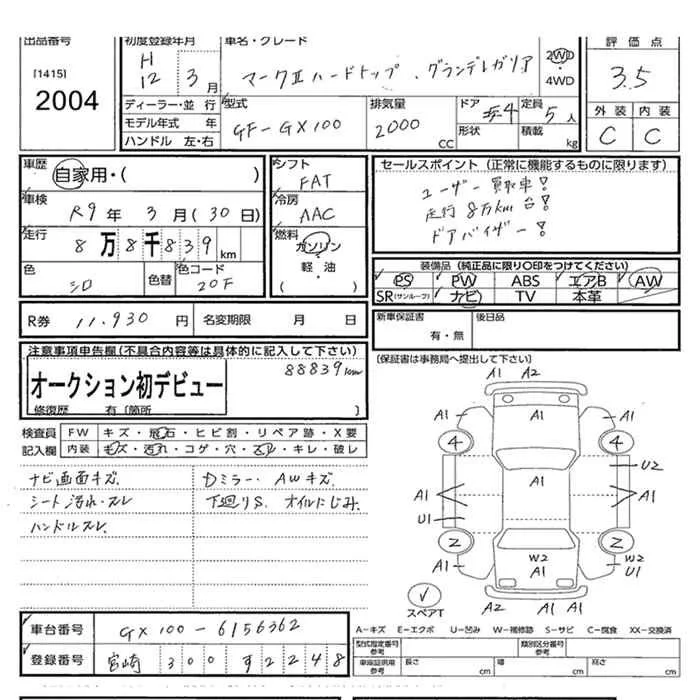 出品番号
[1415]
2004
初度登録年月
H
12 3月
車名・グレード
マークⅡハードトップ . グランデレガリア
2WD
・
4WD
評価点
3.5
外装 内装
C C
ディーラー・並 行
モデル年式 年
ハンドル 左・右
型式
GF-GX100
排気量
2000
CC
ドア
4
形状
定員
5人
積載 kg
車歴
自家用・( )
車検
R9年 3月(30日)
走行
8万8千839km
色
シロ
色替
色コード
20F
シフト
FAT
冷房
AAC
燃料
ガソリン
軽・油
( )
セールスポイント(正常に機能するものに限ります)
ユーザー買取車!
走行8万km台!
ドアバイザー!
装備品(純正品に限り〇印をつけてください)
PS PW ABS エアB AW
SR(サンルーフ) ナビ TV 本革
R券 11.930 円 名変期限 月 日
新車保証書
有・無
後日品
注意事項申告欄(不具合内容等は具体的に記入して下さい)
88839km
オークション初デビュー
修復歴 有〔箇所 〕
(保証書は事務局へ提出して下さい)
検査員
記入欄
FW キズ・飛石・ヒビ割・リペア跡・X要
内装 キズ・汚れ・コゲ・穴・スレ・キレ・破レ
ナビ画面キズ.
シート汚れ・スレ
ハンドルスレ.
Dミラー. AWキズ.
下廻りS. オイルにじみ.
A1 A2
A1
A1 A1
4 4
A1
U2
A1 A1
U1
2 2
A1
W2
A1
W2
U1
スペアT
A2 A1 A1
A-キズ E-エクボ U-凹み W-補修跡 S-サビ C-腐食 XX-交換済
車台番号 GX100-6156362
登録番号 宮崎 300 す2248
型式指定番号
参考
類別区分番号
参考
車庫証明用
参考
長さ cm 幅 cm 高さ cm